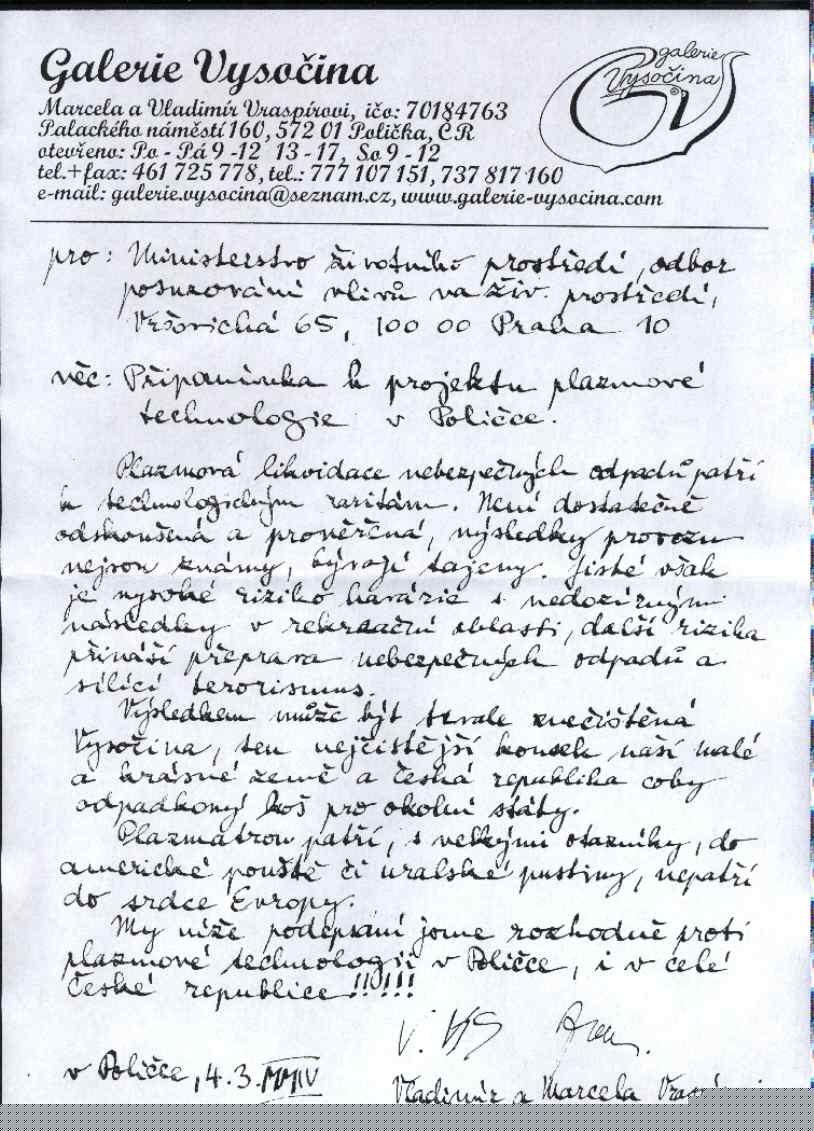 Galerie Vysočina
galerie
Vysočina
®
Marcela a Vladimír Vraspírovi, ičo: 70184763
Palackého náměstí 160, 572 01 Polička, ČR
otevřeno: Po - Pá 9 -12 13 - 17, So 9 - 12
tel.+fax: 461 725 778, tel.: 777 107 151, 737 817 160
e-mail: galerie.vysocina@seznam.cz, www.galerie-vysocina.com
pro: Ministerstvo životního prostředí, odbor
posuzování vlivů na živ. prostředí,
Vršovická 65, 100 00 Praha 10
věc: Připomínka k projektu plazmové
technologie v Poličce.
Plazmová likvidace nebezpečných odpadů patří
k technologickým raritám. Není dostatečně
odzkoušená a prověřená, výsledky provozu
nejsou známy, bývají tajeny. Jisté však
je vysoké riziko havárie s nedozírnými
následky v rekreační oblasti, další rizika
přináší přeprava nebezpečných odpadů a
sílící terorismus.
Výsledkem může být trvale znečištěná
Vysočina, ten nejčistější kousek naší malé
a krásné země a česká republika coby
odpadkový koš pro okolní státy.
Plazmatron patří, s velkými otazníky, do
americké pouště či uralské pustiny, nepatří
do srdce Evropy.
My níže podepsaní jsme rozhodně proti
plazmové technologii v Poličce, i v celé
České republice!!!!!
v Poličce, 4.3. MMIV
Vladimír a Marcela